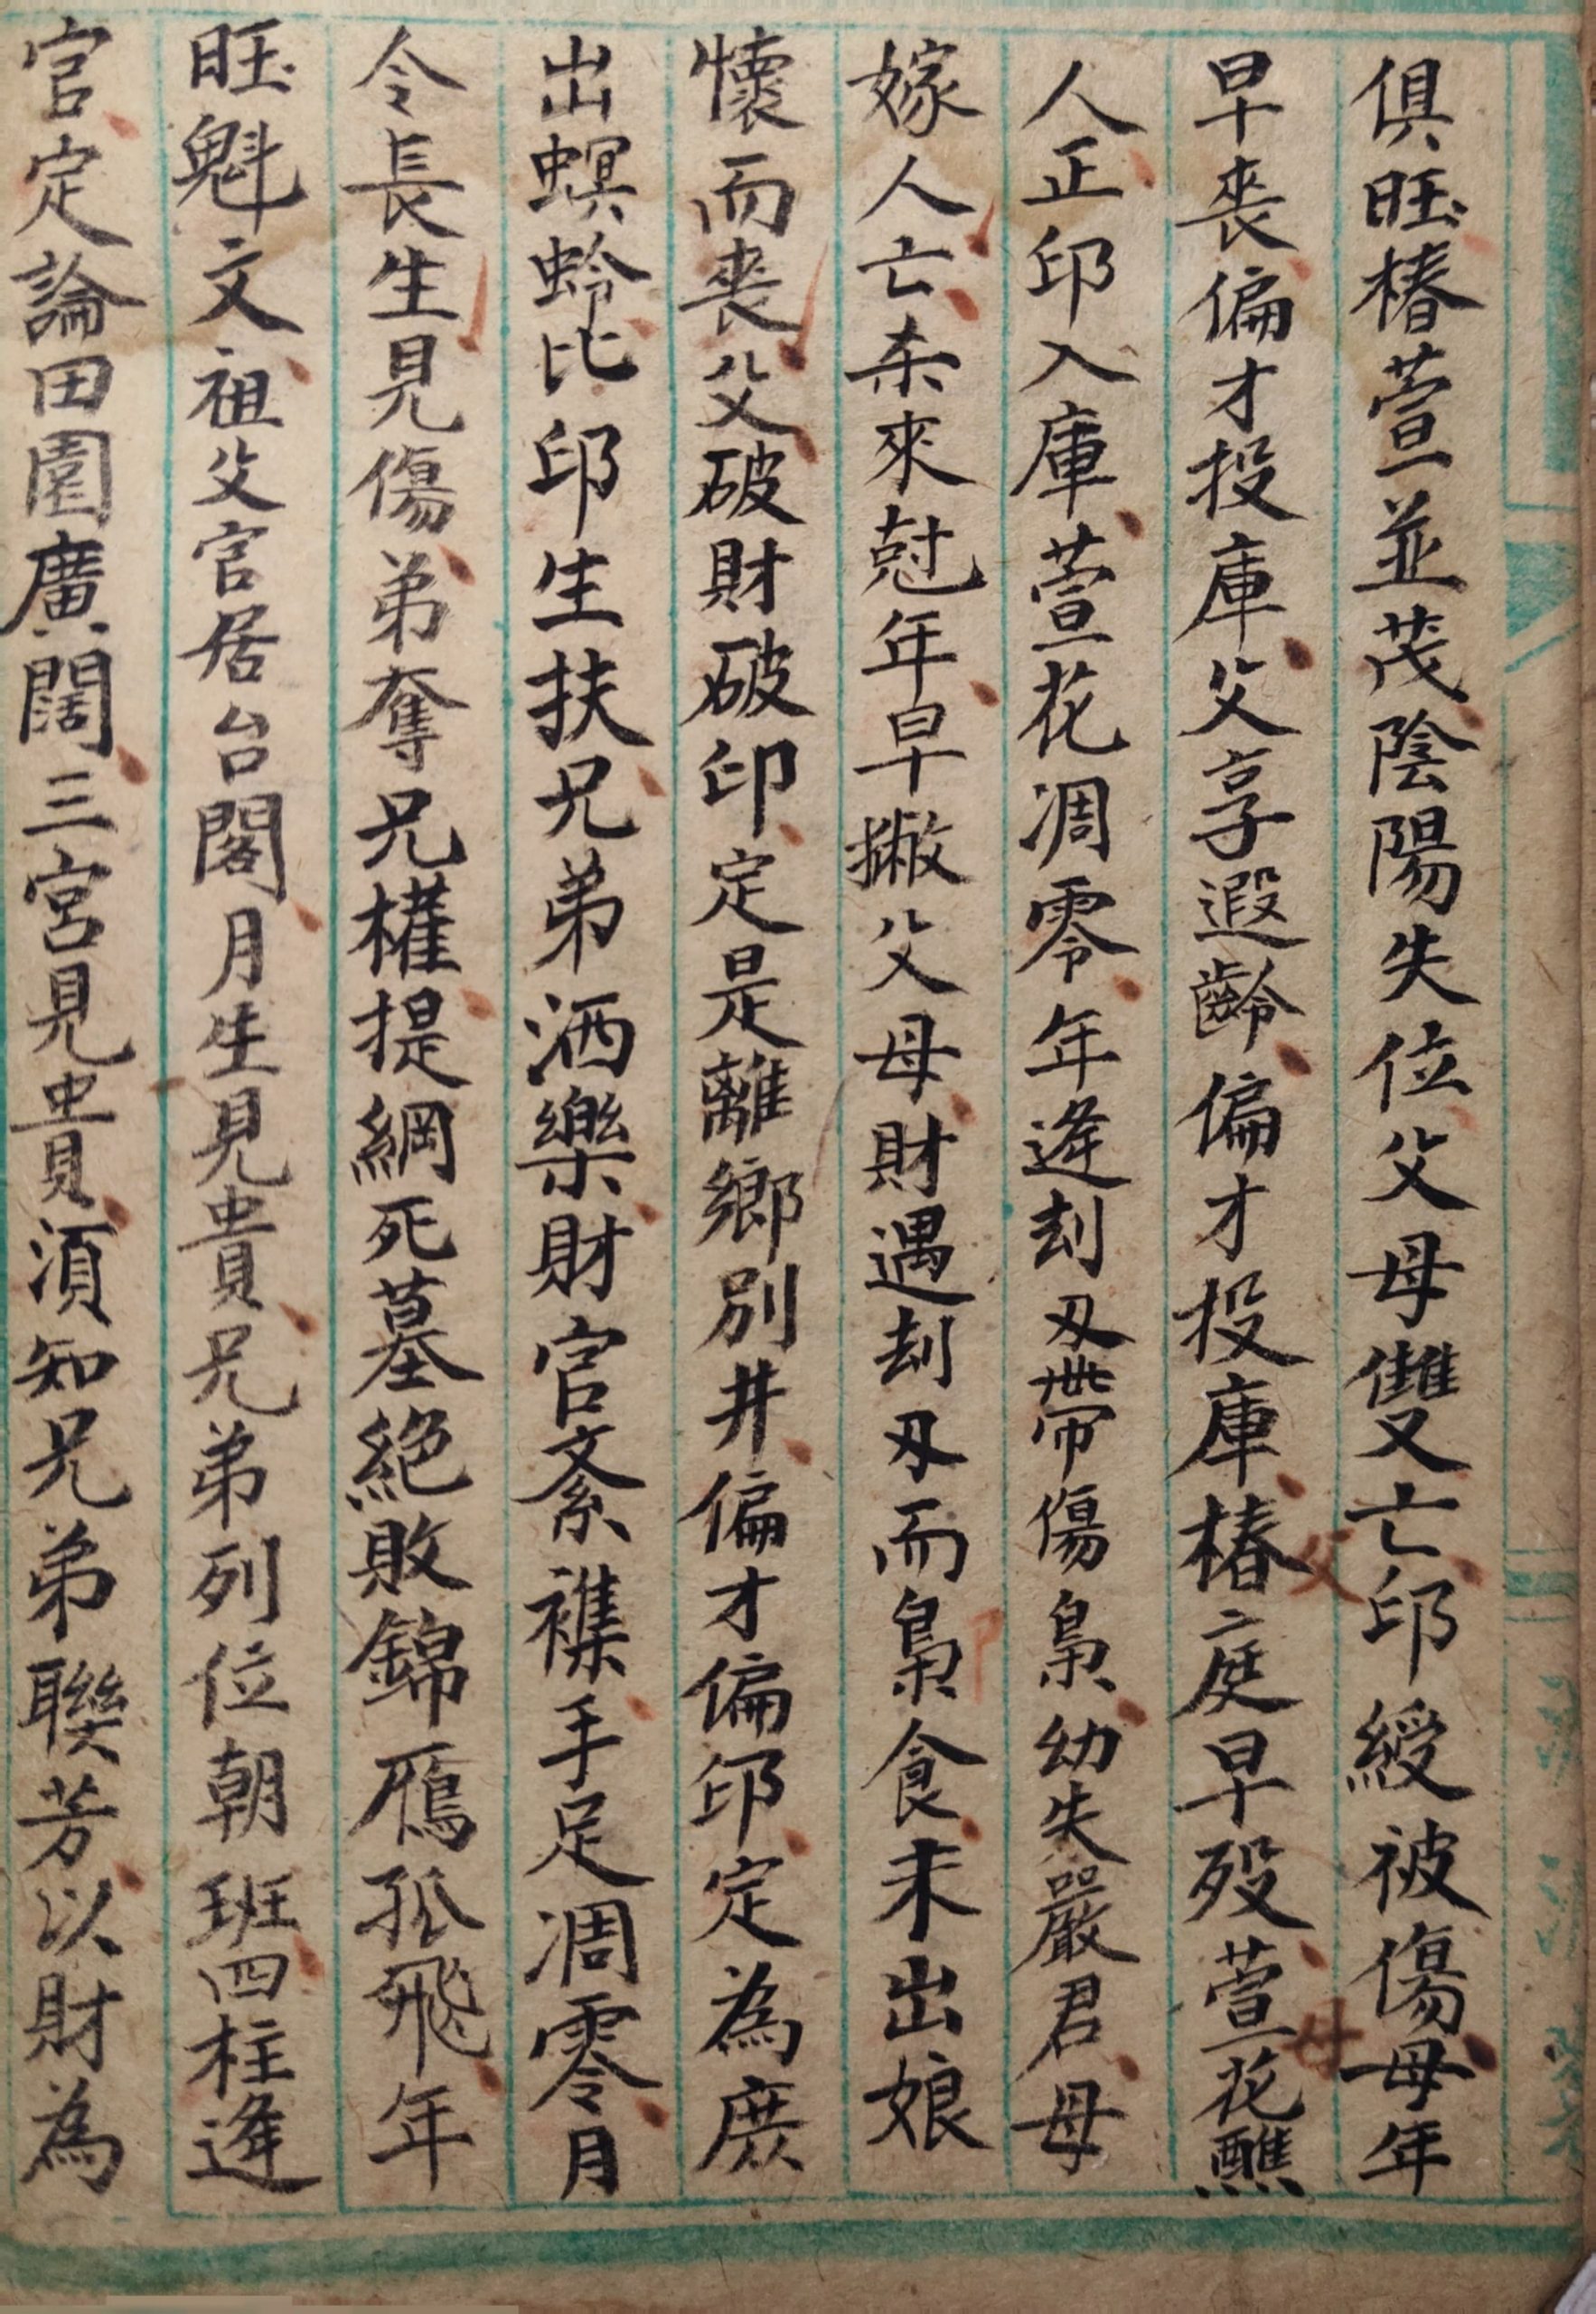 俱旺椿萱並茂陰陽失位父母雙亡印綬被傷母年
早丧偏才投庫父享遐齡偏才投庫椿庭早殁萱花醮
人正印入庫萱花凋零年逢刦刃帶傷梟幼失嚴君母
嫁人亡杀來尅年早撇父母財遇刦刃而梟食未出娘
懷而丧父破財破印定是離鄉別井偏才偏印定為庶
出螟蛉比印生扶兄弟洒樂財官紊襍手足凋零月
令長生見傷弟奪兄權提綱死墓絕敗錦鴈孤飛年
旺魁文祖父官居台閣月生見貴兄弟列位朝班四柱逢
官定論田園廣闊三宮見貴須知兄弟聯芳以財為
父
母